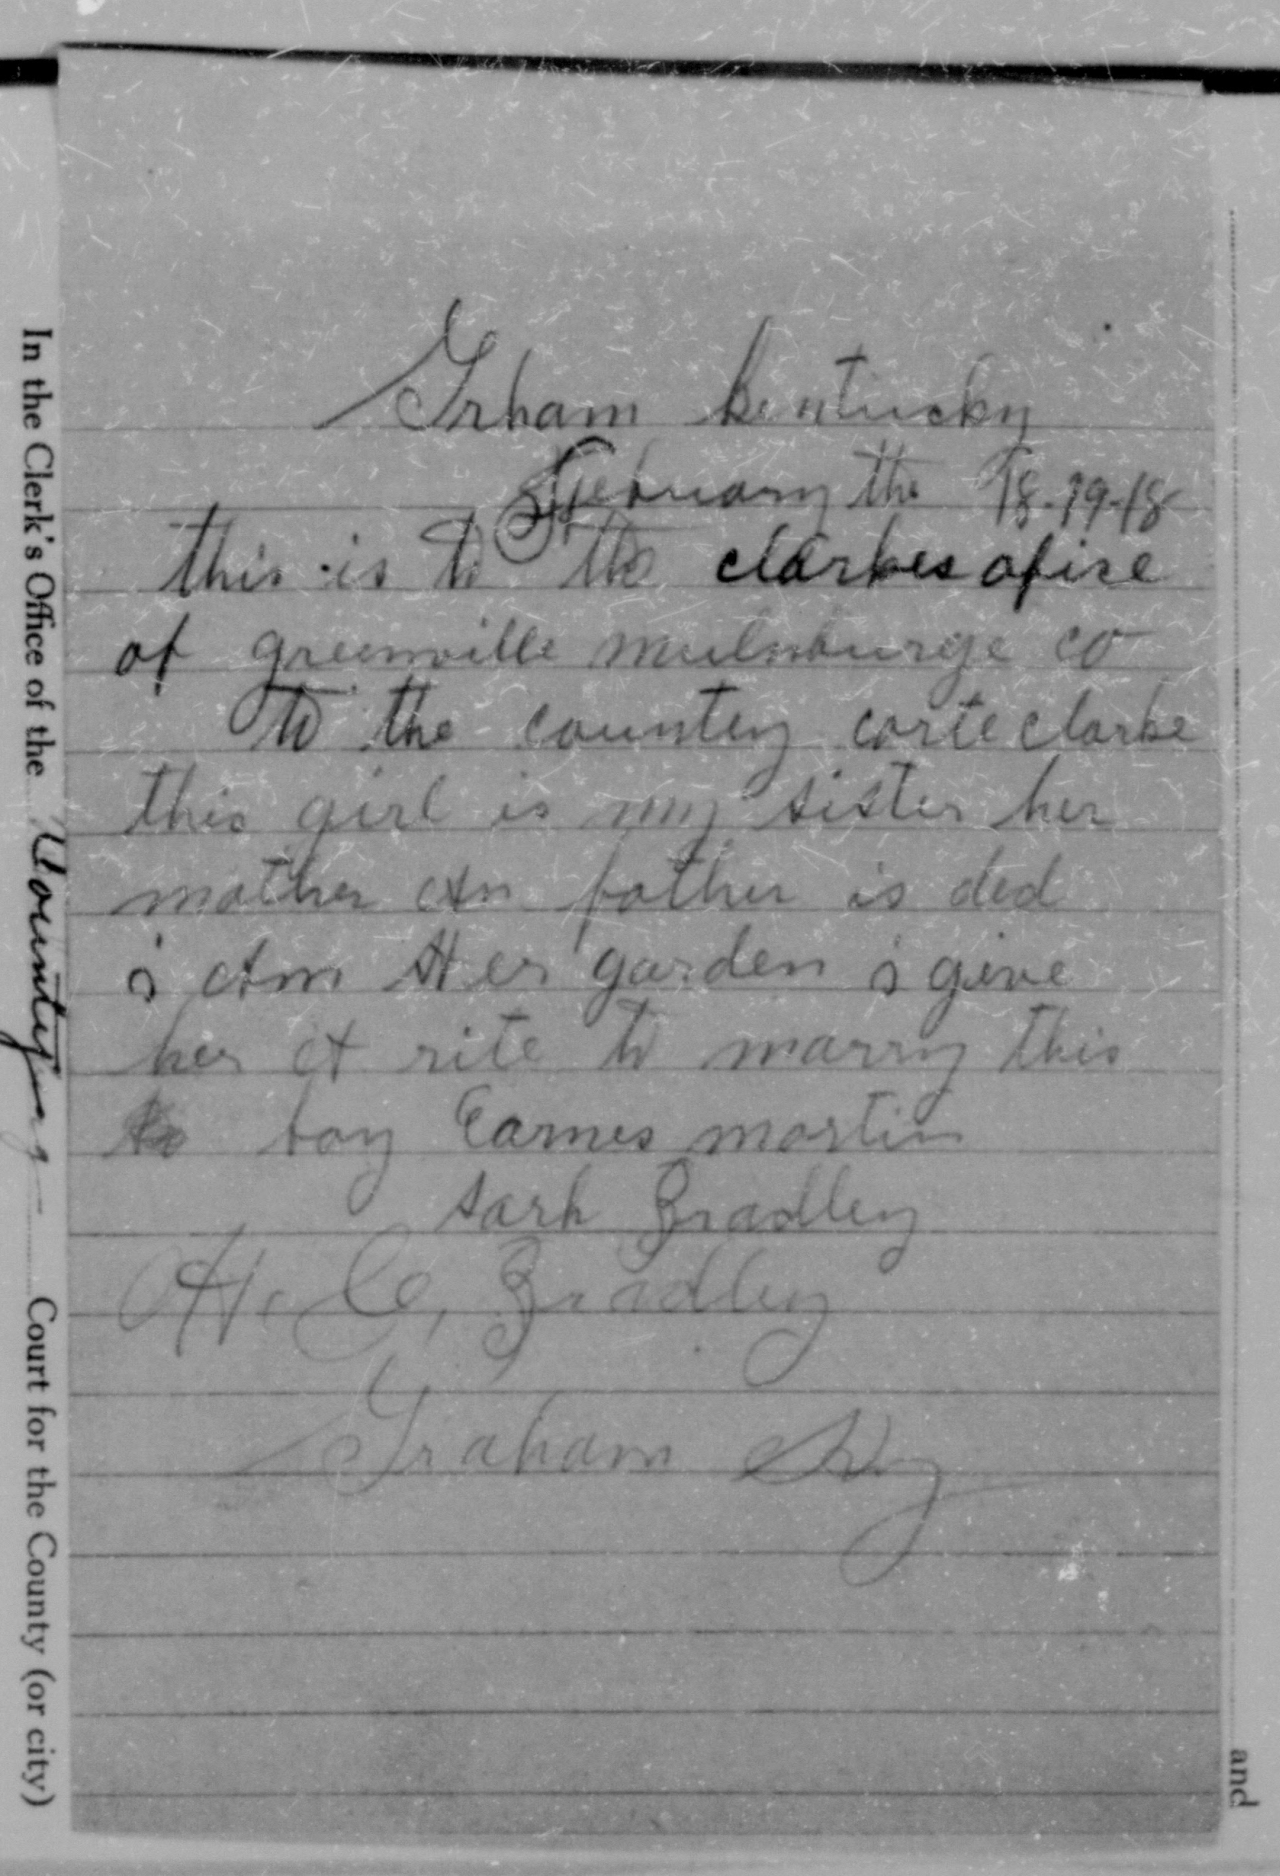 Grham Kentucky
February the 18-19-18
this is to the clarkes ofise
of greenville mulnburge co
to the countey corte clarke
this girl is my sister her
mother An father is ded
i Am Her garden i give
her A rite to marry this
boy Earnes martin
Sarh Bradley
H. C. Bradley
Graham Ky
In the Clerk's Office of the County Court for the County (or city)
and